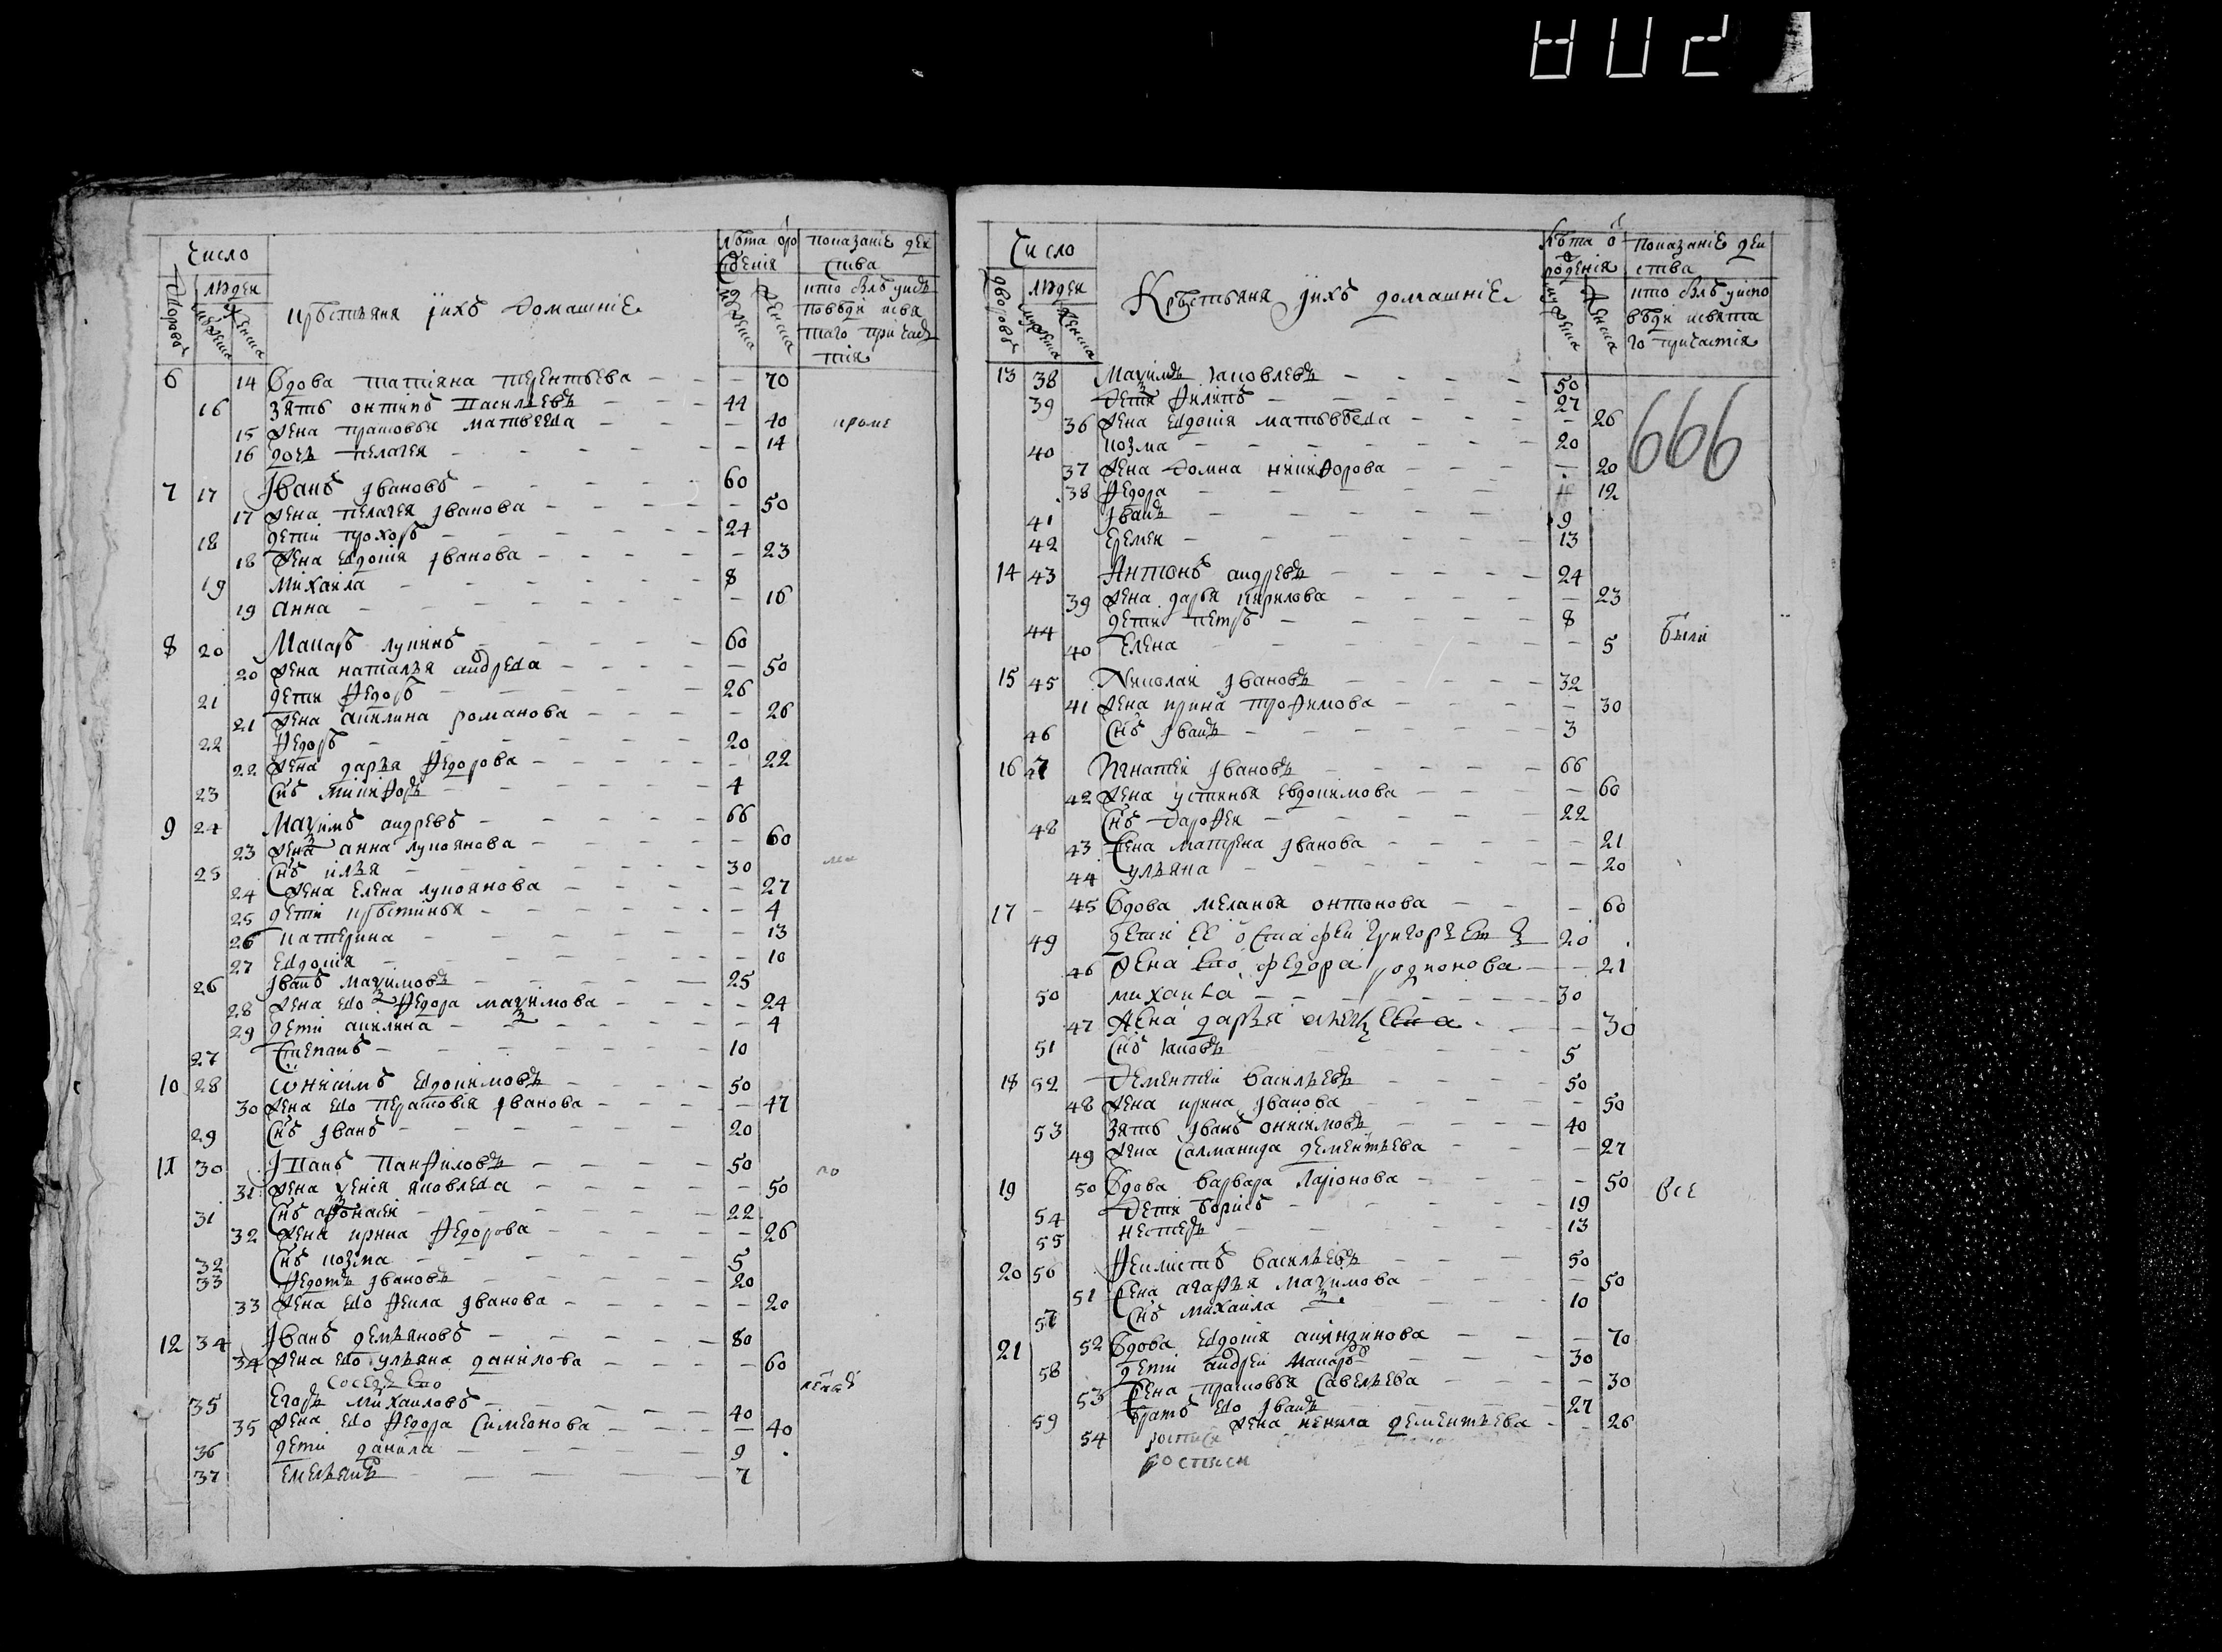 Число
людеи
дворовъ
мужеска
женска
крестьяня ихъ домашние
лѣта о ро
ждения
мужеска
женска
показание деи
ства
кто былъ у исъ
повѣди и свя
таго причас
тия
6 14 Вдова татияна терентьева — 70
16 зять онтипъ Васильевъ 44
15 жена прасковья матвеева — 40 кроме
16 дочь пелагея — 14
7 17 Iванъ Iвановъ 60
17 жена пелагея Iванова — 50
18 дети прохоръ 24
18 жена евдокия Iванова — 23
19 михаила 8
19 анна — 16
8 20 Макаръ лукинъ 60
20 жена наталья андреева — 50
21 дети федоръ 26
21 жена акилина романова — 26
22 федоръ 20
22 жена дарья федорова — 22
23 снъ никифоръ 4
9 24 Маѯимъ андревъ 66
23 жена анна лукоянова — 60
25 снъ илья 30
24 жена елена лукоянова — 27
25 дети крѣстинья — 4
26 катерина — 13
27 евдокия — 10
26 Iванъ маѯимовъ 25
28 жена ево федора маѯимова — 24
29 дети акилина — 4
27 степанъ 10
10 28 Ѡнисимъ евдокимовъ 50
30 жена ево перасковия Iванова — 47
29 снъ Iванъ 20
11 30 Iванъ панфиловъ 50 по
31 жена ѯения яковлева — 50
31 снъ афонасеи 22
32 жена ирина федорова — 26
32 снъ козма 5
33 федотъ Iвановъ 20
33 жена ево фекла Iванова — 20
12 34 Iванъ демьяновъ 80
34 жена ево ульяна данилова — 60
соседъ ево
35 егоръ михаиловъ 40
35 жена ево федора симеонова — 40
36 дети данила 9
37 емельянъ 7
Число
людеи
дворовъ
мужеска
женска
Крѣстьяня ихъ домашние
лѣта о
рождения
мужеска
женска
показание деи
ства
кто былъ у испо
вѣди и свята
го причастия
13 38 Маѯимъ яковлевъ 50
39 дети филипъ 27
36 жена евдокия матвѣева — 26 666
40 козма 20
37 жена домна никифорова — 20
38 федора 12
41 Iванъ 9
42 еремеи 13
14 43 Антонъ андревъ 24
39 жена дарья кирилова — 23
44 дети петръ 8 были
40 елена — 5
15 45 Николаи Iвановъ 32
41 жена ирина трофимова — 30
46 снъ Iванъ 3
16 47 Игнатеи Iвановъ 66
42 жена устинья евдокимова — 60
48 снъ дарофеи 22
43 жена матрена Iванова — 21
44 ульяна — 20
17 — 45 Вдова меланья онтонова — 60
49 дети ее остафеи григорьевъ 20
46 жена ево федора родионова — 21
50 михаила 30
47 жена дарья — 30
51 снъ яковъ 5
18 52 дементеи васильевъ 50
48 жена ирина Iванова — 50
53 зять Iванъ онисимовъ 40
49 жена саломанида дементьева — 27
19 50 Вдова варвара ларионова — 50 все
54 дети борисъ 19
55 нестеръ 13
20 56 Феклистъ васильевъ 50
51 жена агафья маѯимова — 50
57 снъ михаила 10
21 52 Вдова евдокия акиндинова — 70
58 дети андреи макаровъ 30
53 жена прасковья савельева — 30
59 братъ ево Iванъ 27
54 жена ненила дементьева — 26
росписи